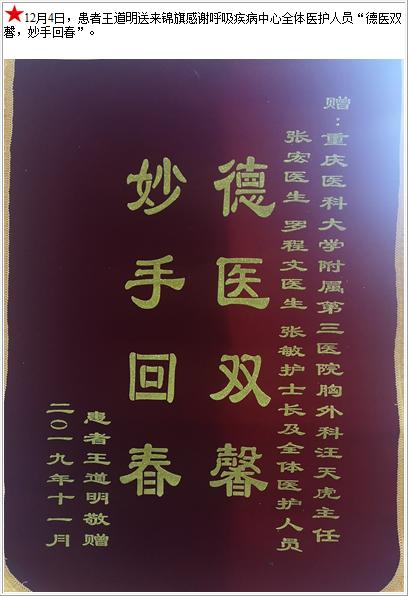 12月4日，患者王道明送来锦旗感谢呼吸疾病中心全体医护人员“德医双
馨，妙手回春”。
赠：重庆医科大学附属第三医院胸外科汪天虎主任
张宏医生 罗程文医生 张敏护士长及全体医护人员
德医双馨
妙手回春
患者王道明敬赠
二〇一九年十一月